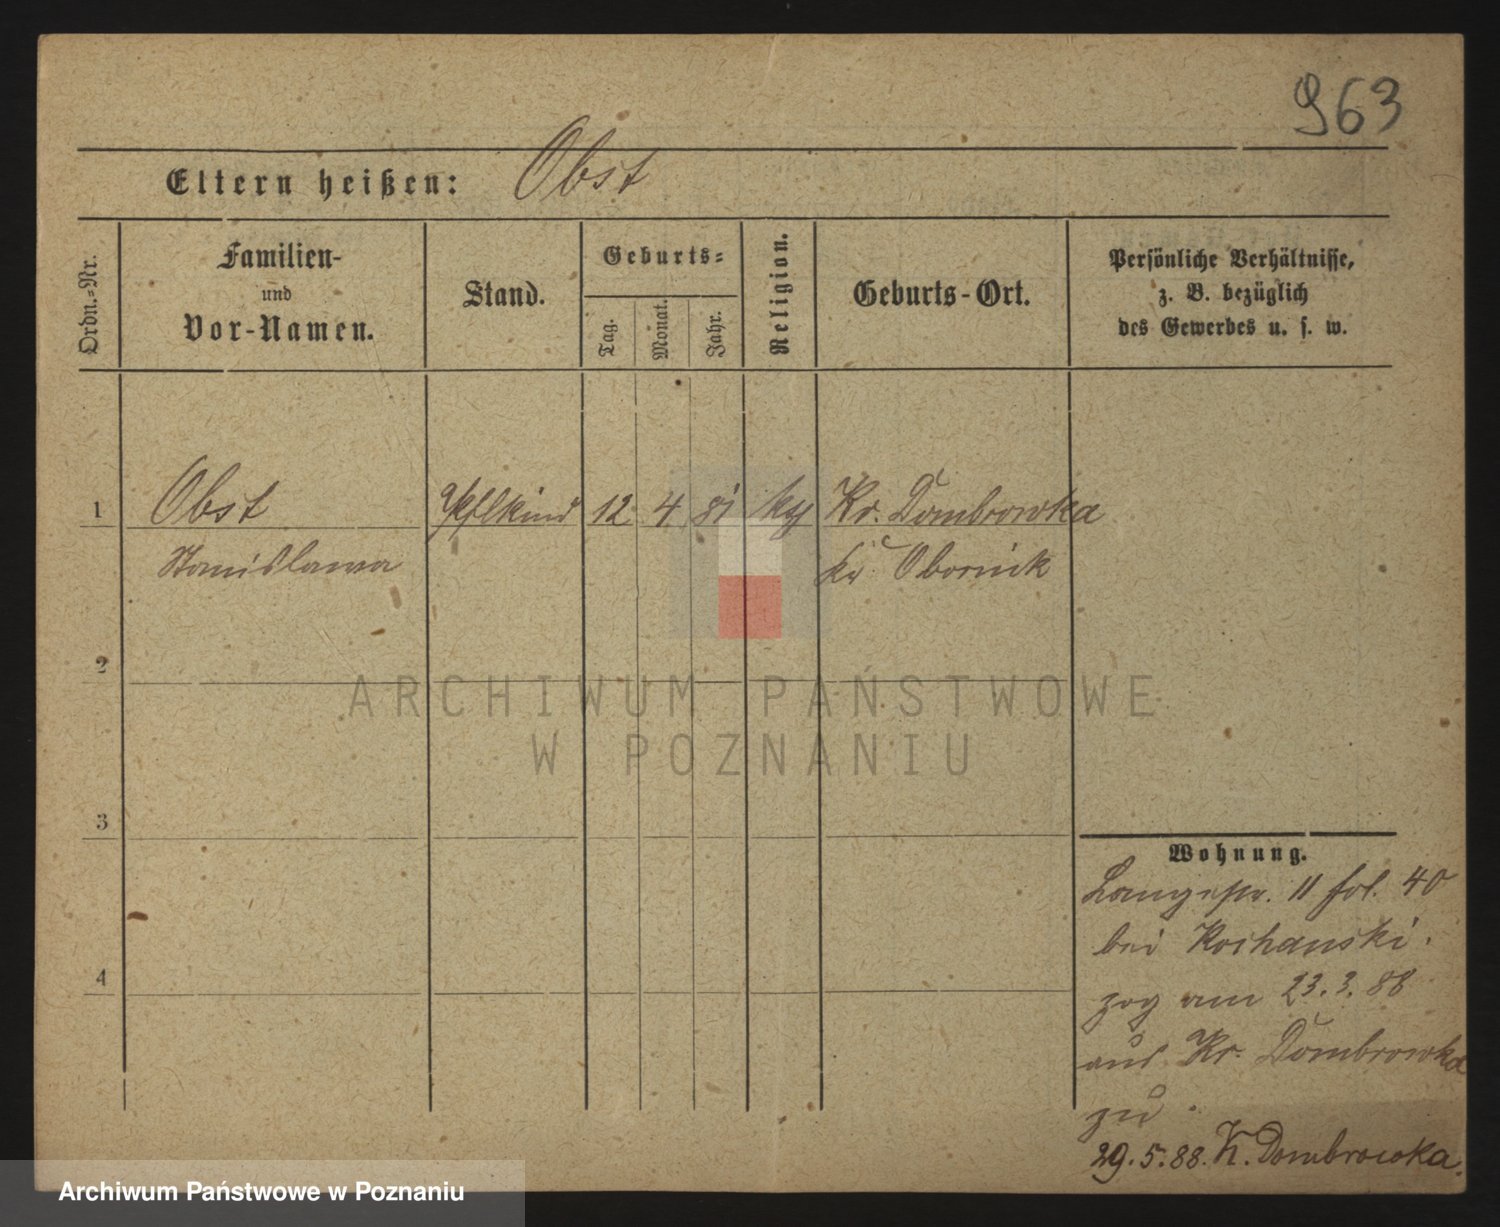 963
Eltern heißen: Obst
Ordn.-Nr.
Familien-
und
Vor-Namen.
Stand.
Geburts-
Tag.
Monat.
Jahr.
Religion.
Geburts-Ort.
Persönliche Verhältnisse,
z. B. bezüglich
des Gewerbes u. s. w.
1 Obst Pflkind 12 4 81 Kr. Dombrowka
Stanislawa Kr. Obornik
2
ARCHIWUM PAŃSTWOWE
W POZNANIU
3
Wohnung.
Langestr. 11 fol. 40
bei Kochanski.
zog am 23.3.88
aus Kr. Dombrowka
zu.
4
29.5.88. K. Dombrowka.
Archiwum Państwowe w Poznaniu